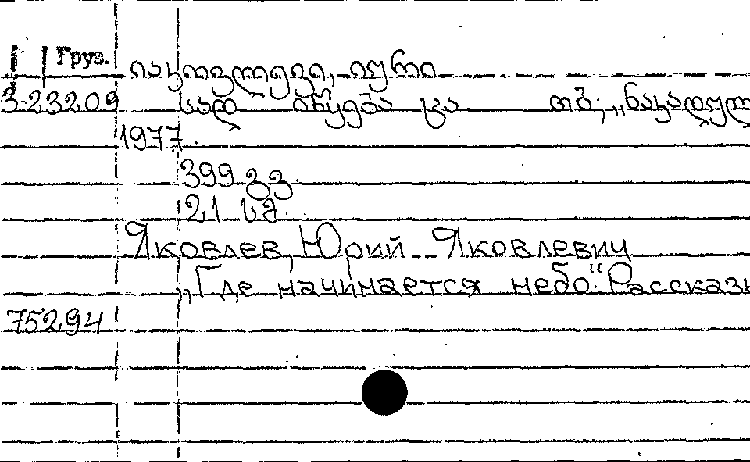 Груз.
იაკოვლევი, იური
3-23209 სად იწყება ცა თბ., „ნაკადულ
1977
399 გვ.
21 სმ.
Яковлев, Юрий Яковлевич
„Где начинается небо“. Рассказы
75294